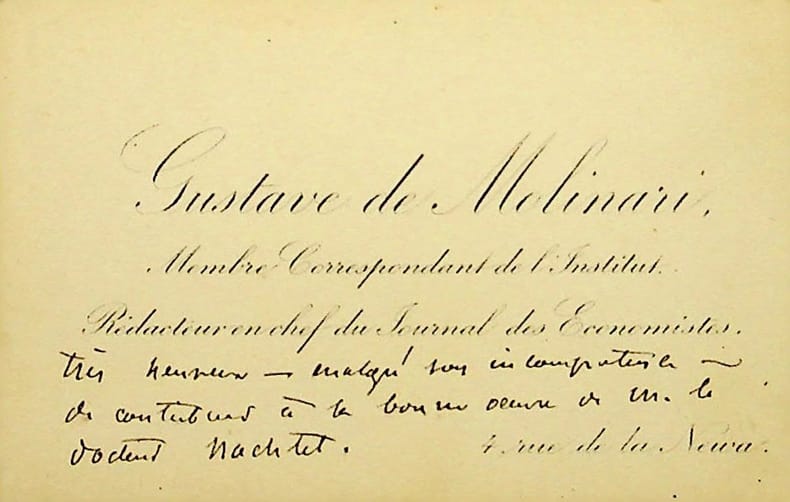 Gustave de Molinari,
Membre Correspondant de l'Institut.
Rédacteur en chef du Journal des Economistes.
très heureux — malgré son incompétence —
de contribuer à la bonne œuvre de M. le
docteur Hachtet.
4 rue de la Néwa.